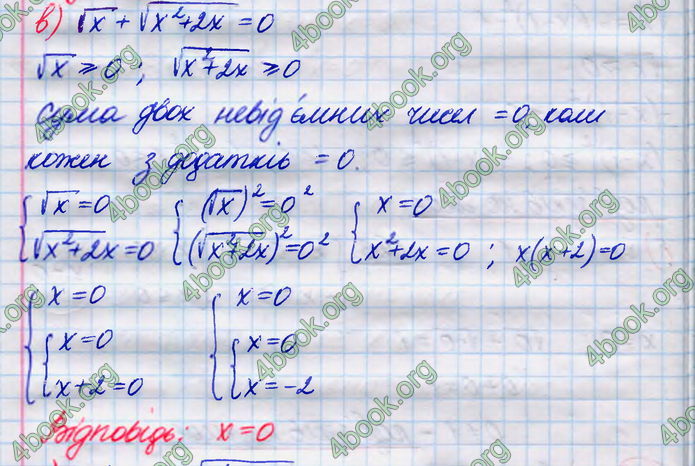 в) √x + √(x²+2x) = 0
√x ⩾ 0; √(x²+2x) ⩾ 0
Сума двох невід'ємних чисел = 0, коли
кожен з додатків = 0.
{ √x = 0 { (√x)² = 0² { x = 0
√(x²+2x) = 0 (√(x²+2x))² = 0² x²+2x = 0 ; x(x+2)=0
{ x = 0 { x = 0
{ x = 0 { x = 0
x+2 = 0 x = -2
Відповідь: x = 0
4book.org